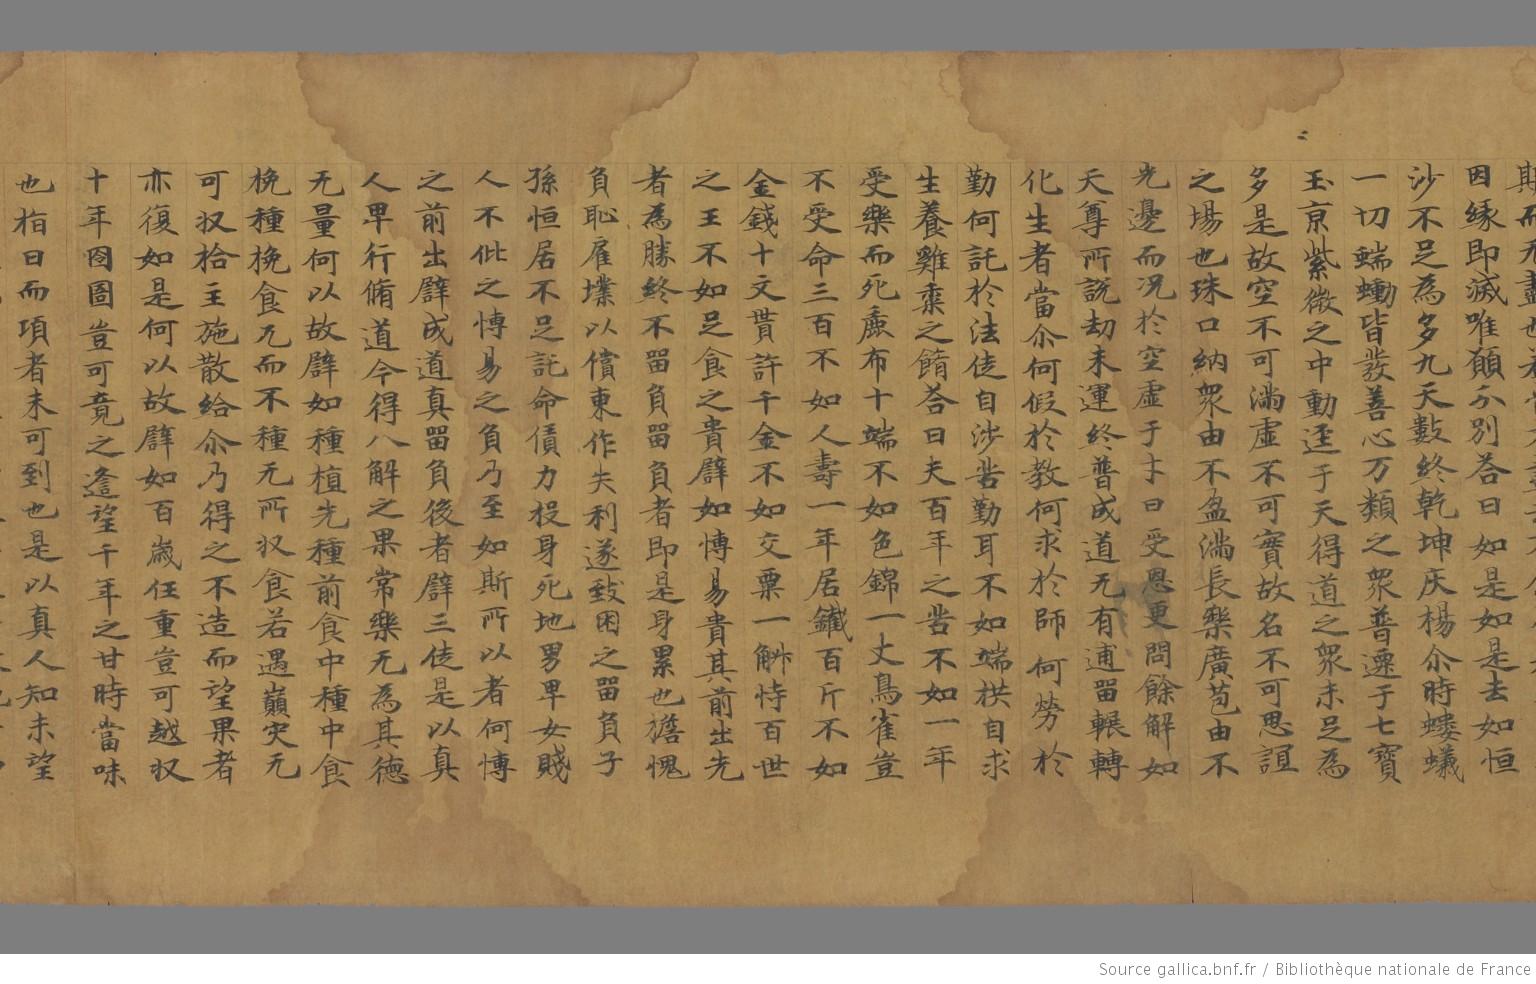 因緣即滅唯願分別荅曰如是如是去如恒
沙不足為多九天數終乾坤庆楊尒時螻蟻
一切蠕蝡皆發善心万類之衆普遷于七寶
玉京紫微之中動逕于天得道之衆未足為
多是故空不可滿虛不可寶故名不可思誼
之場也珠口納衆由不盈滿長樂廣苞由不
光邊而况於空虛于才曰受恩更問餘解如
天尊所說劫未運終普成道无有逋留輾轉
化生者當尒何假於教何求於師何勞於
勤何託於法徒自涉苦勤耳不如端拱自求
生養雞乗之餚荅曰夫百年之苦不如一年
受樂而死麁布十端不如色錦一丈鳥雀豈
不受命三百不如人壽一年居鐵百斤不如
金錢十文貰許千金不如交粟一斛恃百世
之王不如足食之貴譬如博易貴其前出先
者為勝終不留負留負者即是身累也擔愧
負恥雇㙛以償東作失利遂致困之留負子
孫恒居不足託命債力投身死地男卑女賤
人不仳之博易之負乃至如斯所以者何博
之前出譬成道真留負後者譬三徒是以真
人早行脩道今得八解之果常樂无為其德
无量何以故譬如種植先種前食中種中食
晚種晚食乃而不種无所収食若遇巔突无
可収拾主施散給尒乃得之不造而望果者
亦復如是何以故譬如百嵗任重豈可越収
十年圀圖豈可竟之逢望千年之甘時當味
也栢日而項者未可到也是以真人知未望
Source gallica.bnf.fr / Bibliothèque nationale de France